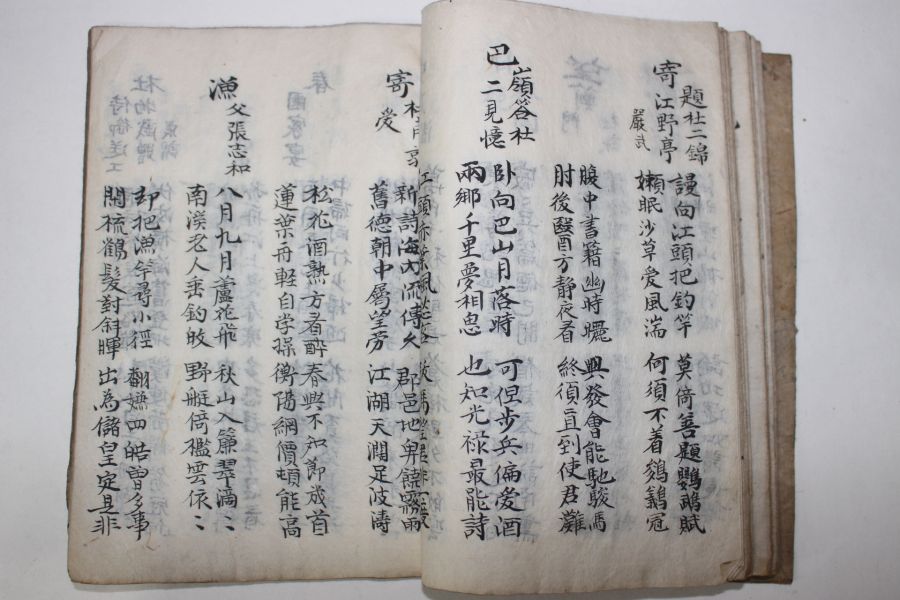 寄題杜二錦
江野亭
嚴武
謾向江頭把釣竿 莫倚善題鸚鵡賦
嬾眠沙草愛風湍 何須不着冠
腹中書籍幽時曬 興發會能馳駿馬
肘後醫方靜夜看 終須直到使君灘
巴嶺答杜
二見憶
臥向巴山月落時 可但步兵偏愛酒
兩鄉千里夢相思 也知光祿最能詩
江頭赤葉楓
寄
新詩海內流傳久 郡邑地卑饒霧雨
舊德朝中屬望勞 江湖天闊足波濤
松花酒熟方看醉 春興不知節歲首
蓮葉舟輕自学操 衡陽價頓能高
漁父張志和
八月九月蘆花飛 秋山入簾翠滴〻
南溪老人垂釣歸 野艇倚檻雲依〻
却把漁竿尋小徑 翻嫌四皓曾多事
閒梳鶴髮對斜暉 出為儲皇定是非